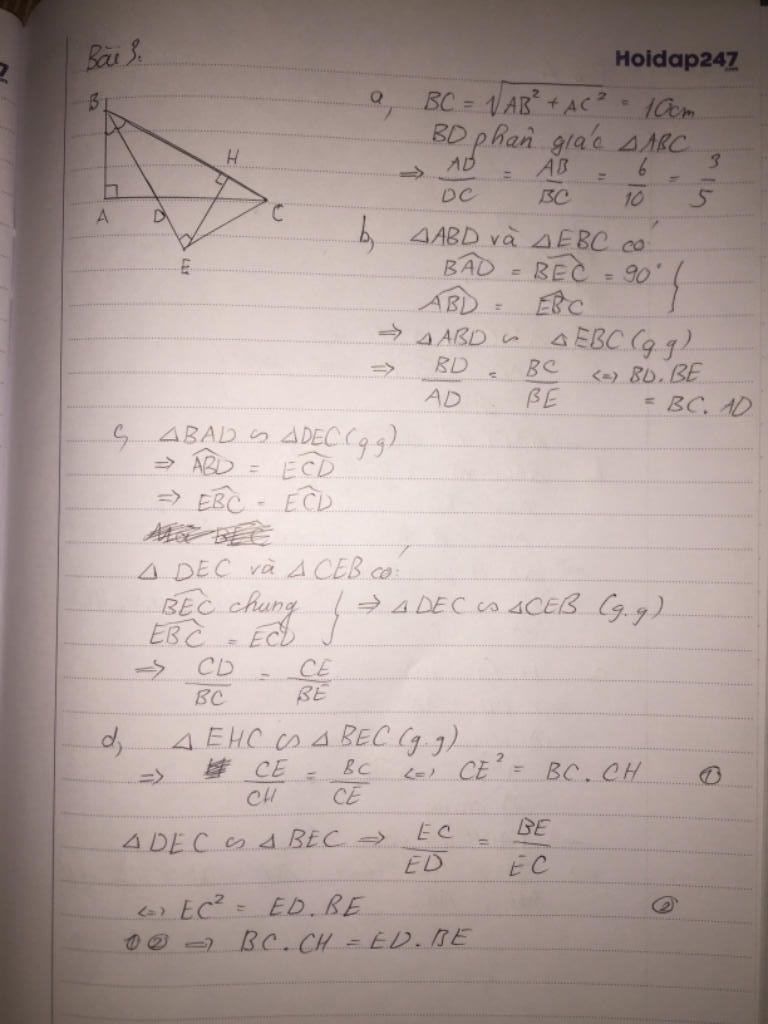 Bài 3.
Hoidap247
B
H
A
D
C
E
a, BC = √(AB² + AC²) = 10cm
BD phân giác △ABC
⇒ AD/DC = AB/BC = 6/10 = 3/5
b, △ABD và △EBC có
BAD^ = BEC^ = 90° }
ABD^ = EBC^
⇒ △ABD ∽ △EBC (g g)
⇒ BD/AD = BC/BE ⇔ BD.BE
= BC. AD
c, △BAD ∽ △DEC (g g)
⇒ ABD^ = ECD^
⇒ EBC^ = ECD^
△ DEC và △CEB có:
BEC^ chung } ⇒ △DEC ∽ △CEB (g.g)
EBC^ = ECD^
⇒ CD/BC = CE/BE
d, △ EHC ∽ △BEC (g.g)
⇒ CE/CH = BC/CE ⇔ CE² = BC. CH ①
△DEC ∽ △BEC ⇒ EC/ED = BE/EC
⇔ EC² = ED. BE ②
① ② ⇒ BC. CH = ED. BE